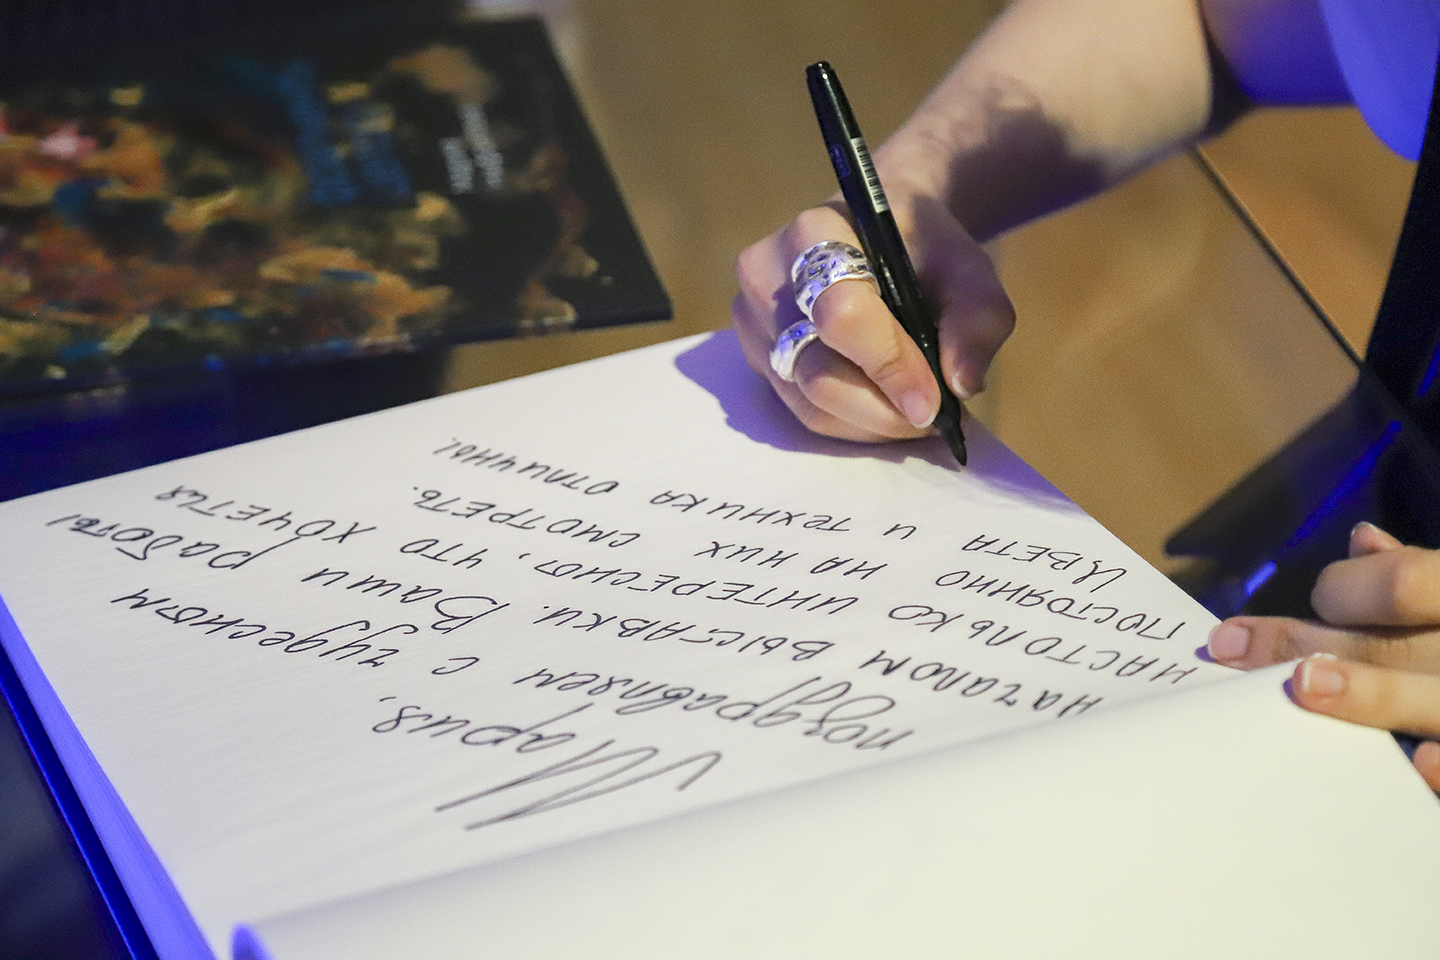 Мария,
поздравляем с чудесном
началом выставки. Ваши работы
НАСТОЛЬКО ИНТЕРЕСНЫ, ЧТО ХОЧЕТСЯ
ПОСТОЯННО НА НИХ СМОТРЕТЬ.
ЦВЕТА И ТЕХНИКА ОТЛИЧНЫ.